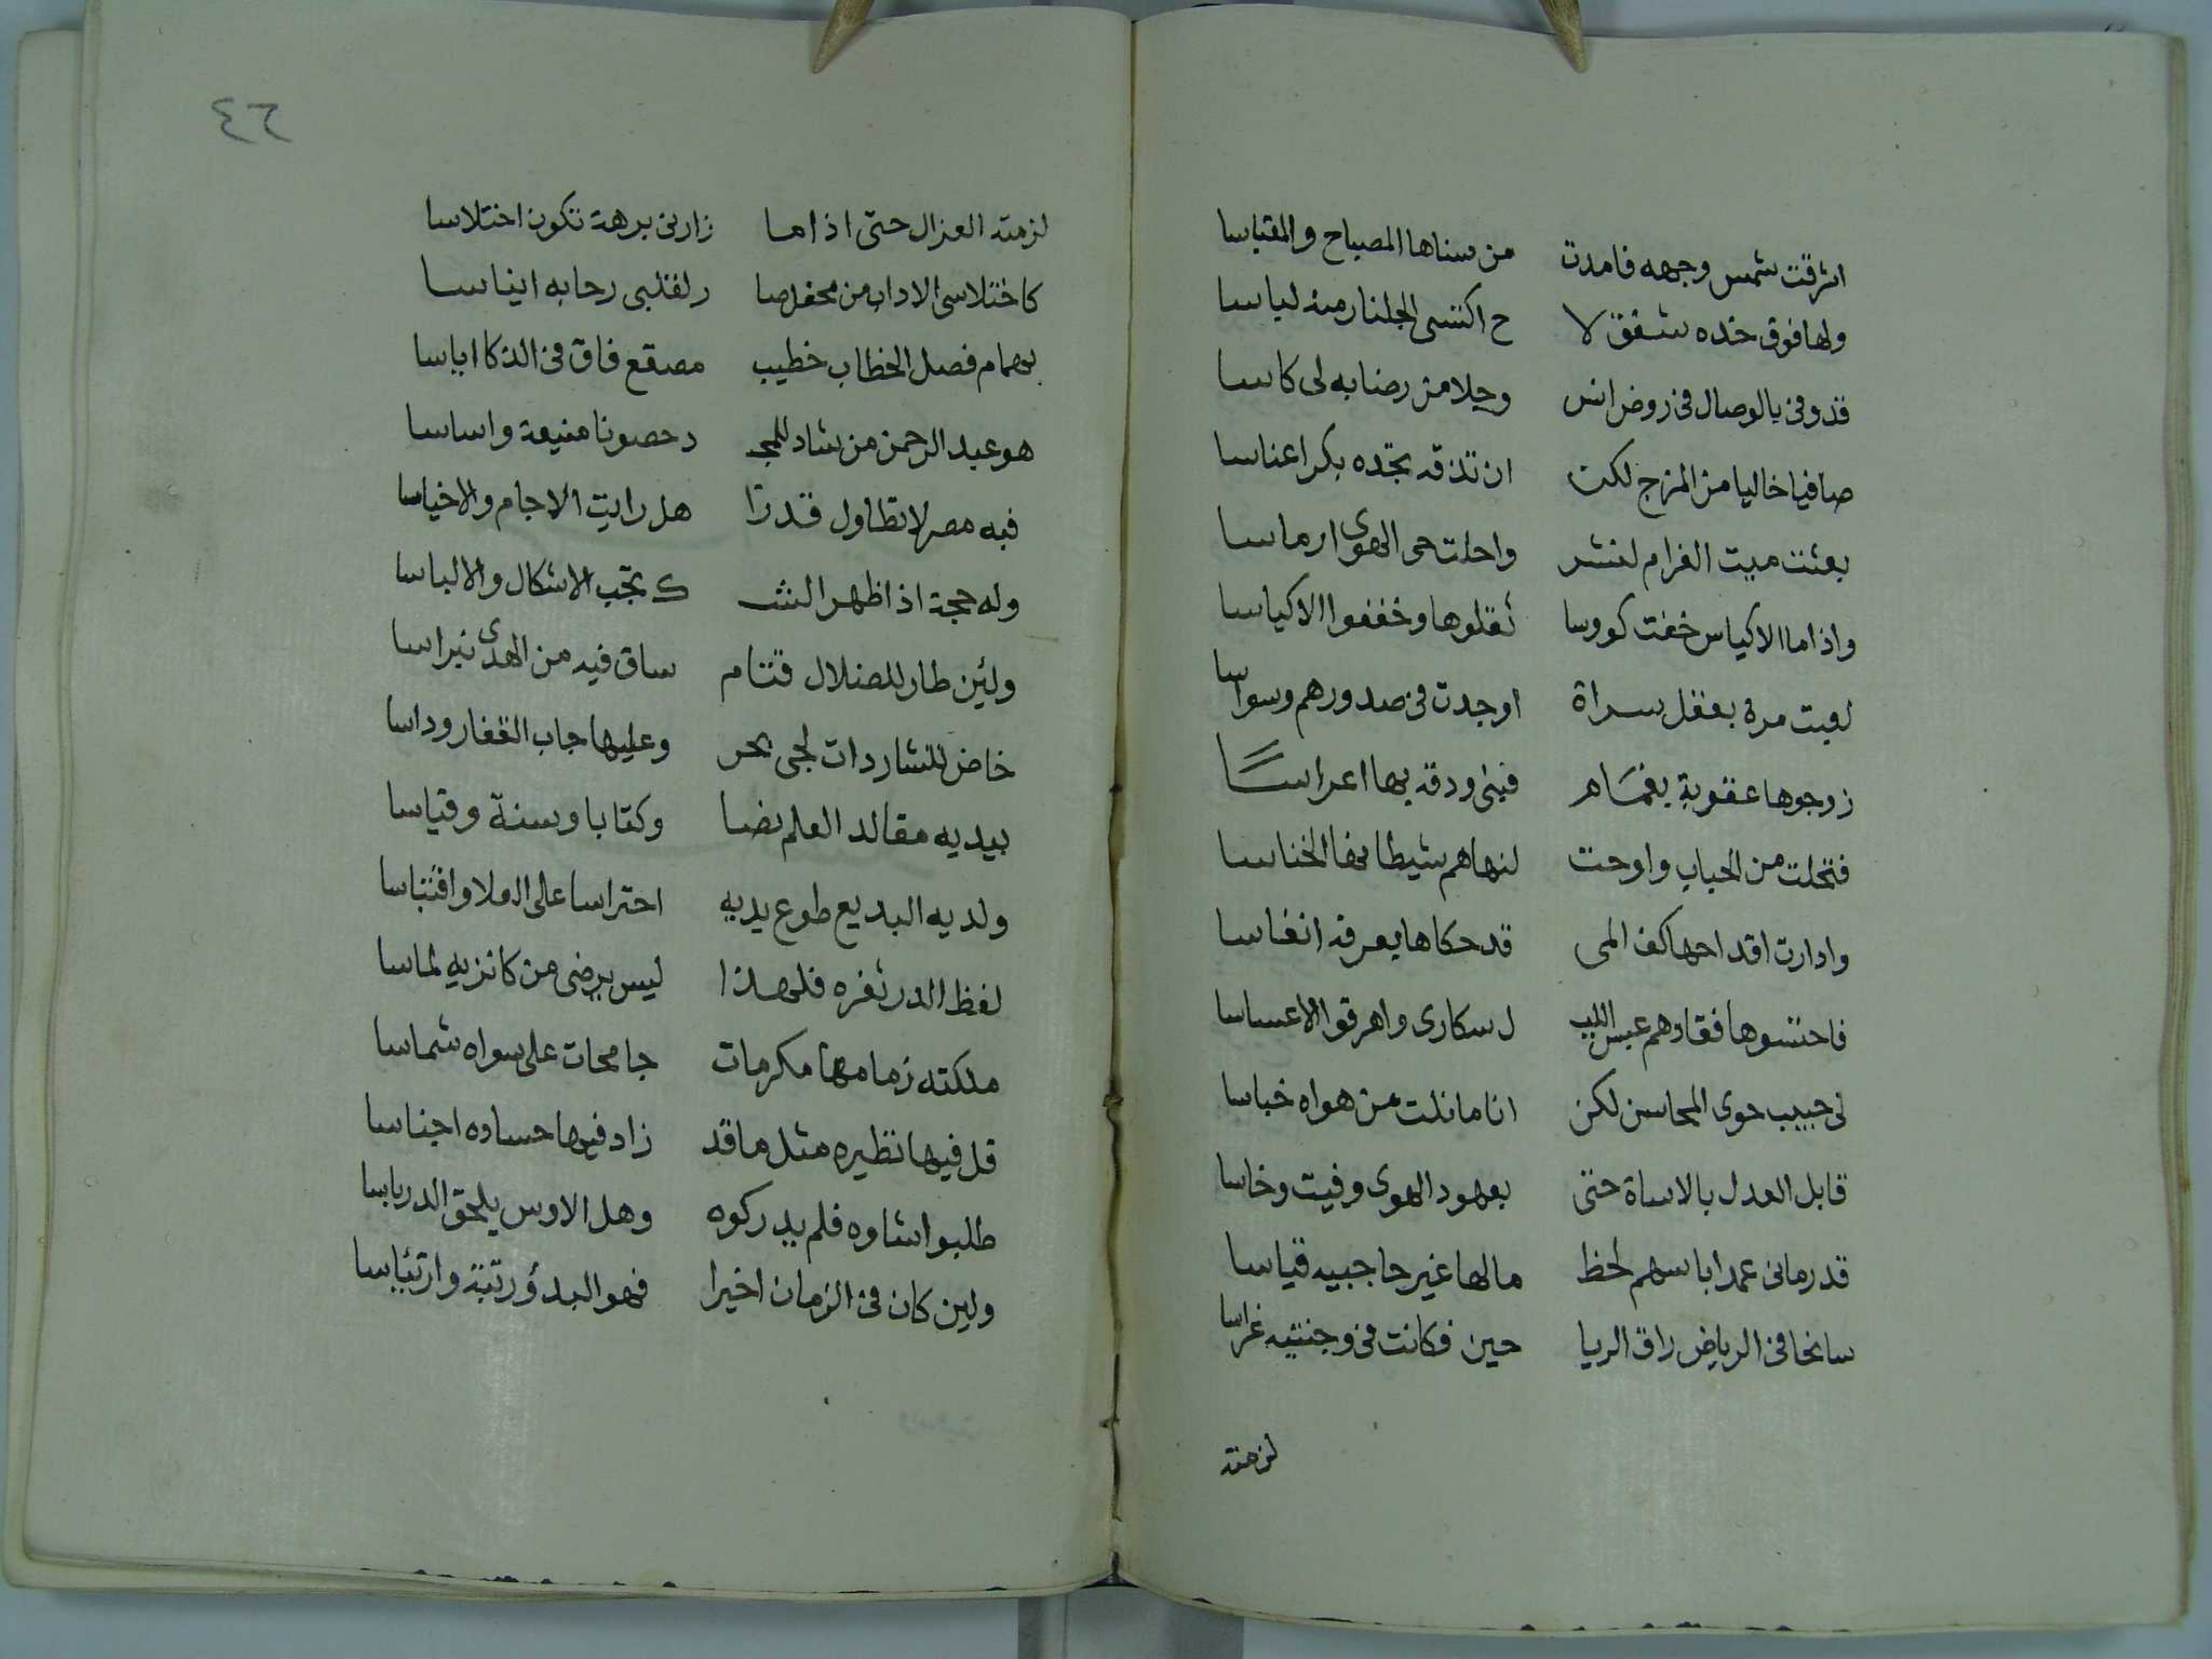 اشرقت شمس وجهه فامدت من سناها المصباح والمقباسا
ولها فوق خده شفق لا ح اكتسى الجلنار منه لباسا
قد وفى بالوصال فى روض انس وجلا من رضابه لى كاسا
صافيا خاليا من المزج لكن ان تذقه تجده بكرا عناسا
بعثت ميت الغرام لنشر واحلت حمى الهوى ارماسا
واذا ما الاكياس خفت كووسا ثقلوها وخففوا الاكياسا
لعبت مرة بعقل سراة اوجدت فى صدورهم وسواسا
زوجوها عقوبة بغمام فبنى ودقه بها اعراسًا
فتحلت من الحباب واوحت لنهاهم شيطانها الخناسا
وادارت اقداحها كف المى قد حكاها بعرفه انفاسا
فاحتسوها فقادهم عبس الليـ ل سكارى واهرقوا الاعساسا
لى حبيب حوى المحاسن لكن انا ما نلت من هواه خباسا
قابل العدل بالاساة حتى بعهود الهوى وفيت وخاسا
قد رمانى عمدا باسهم لحظ ما لها غير حاجبيه قياسا
سانحا فى الرياض راق الريا حين فكانت فى وجنتيه غراسا
لزمته
٤٦
لزمته الغزال حتى اذا ما زارنى برهة تكون اختلاسا
كاختلاسى الاداب من محفل صا ر لقلبى رحابه ايناسا
بهمام فصل الخطاب خطيب مصقع فاق فى الذكا اياسا
هو عبد الرحمن من شاد للمجـ د حصونا منيعة واساسا
فبه مصر لا تطاول قدرا هل رايت الاجام والاخياسا
وله حجة اذا ظهر الشـ ك تجب الاشكال والالباسا
ولئن طار للضلال قتام ساق فيه من الهدى نبراسا
خاض للشاردات لجى بحر وعليها جاب القفار وداسا
بيديه مقالد العلم نصا وكتابا وسنة وقياسا
ولديه البديع طوع يديه احتراسا على الولا واقتباسا
لفظ الدر ثغره فلهذا ليس يرضى من كانزيه لماسا
ملكته زمامها مكرمات جامحات على سواه شماسا
قل فيها نظيره مثل ما قد زاد فيها حساده اجناسا
طلبوا شاوه فلم يدركوه وهل الاوس يلحق الدرباسا
ولين كان فى الزمان اخيرا فهو البدؤ رتبة وارتئاسا